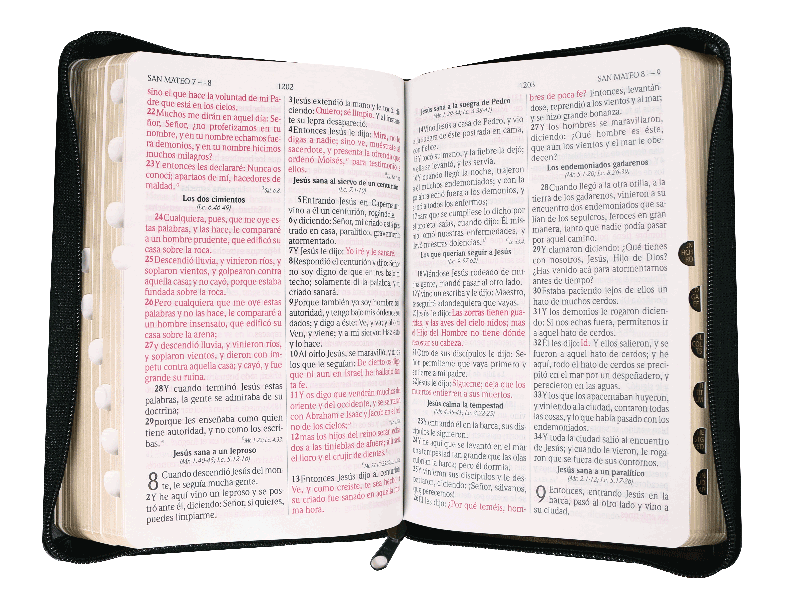 SAN MATEO 7 – 8
1202
sino el que hace la voluntad de mi Pa-
dre que está en los cielos.
22Muchos me dirán en aquel día: Se-
ñor, Señor, ¿no profetizamos en tu
nombre, y en tu nombre echamos fue-
ra demonios, y en tu nombre hicimos
muchos milagros?
23Y entonces les declararé: Nunca os
conocí; apartaos de mí, hacedores de
maldad.
Los dos cimientos
(Lc. 6.46-49)
24Cualquiera, pues, que me oye es-
tas palabras, y las hace, le compararé
a un hombre prudente, que edificó su
casa sobre la roca.
25Descendió lluvia, y vinieron ríos, y
soplaron vientos, y golpearon contra
aquella casa; y no cayó, porque estaba
fundada sobre la roca.
26Pero cualquiera que me oye estas
palabras y no las hace, le compararé a
un hombre insensato, que edificó su
casa sobre la arena;
27y descendió lluvia, y vinieron ríos,
y soplaron vientos, y dieron con ím-
petu contra aquella casa; y cayó, y fue
grande su ruina.
28Y cuando terminó Jesús estas
palabras, la gente se admiraba de su
doctrina;
29porque les enseñaba como quien
tiene autoridad, y no como los escri-
bas.
Jesús sana a un leproso
(Mr. 1.40-45; Lc. 5.12-16)
8 Cuando descendió Jesús del mon
te, le seguía mucha gente.
2Y he aquí vino un leproso y se pos
tró ante él, diciendo: Señor, si quieres,
puedes limpiarme.
3Jesús extendió la mano y le
ciendo: Quiero; sé limpio. Y al instan
te su lepra desapareció.
4Entonces Jesús le dijo: Mira, no lo
digas a nadie; sino ve, muéstrate al
sacerdote, y presenta la ofrenda que
ordenó Moisés, para testimonio
ellos.
Jesús sana al siervo de un centurión
(Lc. 7.1-10)
5Entrando Jesús en Capernaum
vino a él un centurión, rogándole
6y diciendo: Señor, mi criado está pos
trado en casa, paralítico, gravemente
atormentado.
7Y Jesús le dijo: Yo iré y le sanaré.
8Respondió el centurión y dijo: Señor
no soy digno de que entres bajo
techo; solamente di la palabra, y
criado sanará.
9Porque también yo soy hombre
autoridad, y tengo bajo mis órdenes
dados; y digo a éste: Ve, y va; y
Ven, y viene; y a mi siervo: Haz
y lo hace.
10Al oírlo Jesús, se maravilló, y
los que le seguían: De cierto os digo
que ni aun en Israel he hallado
ta fe.
11Y os digo que vendrán muchos
oriente y del occidente, y se sentarán
con Abraham e Isaac y Jacob en el
no de los cielos;
12mas los hijos del reino serán echa
dos a las tinieblas de afuera; allí será
el lloro y el crujir de dientes.
13Entonces Jesús dijo al centurión
Ve, y como creíste, te sea hecho
su criado fue sanado en aquella
ma hora.
1203
SAN MATEO 8 – 9
Jesús sana a la suegra de Pedro
14Vino Jesús a casa de Pedro, y vio
a la suegra de éste postrada en cama,
con fiebre.
15Y tocó su mano, y la fiebre la dejó;
y ella se levantó, y les servía.
16Y cuando llegó la noche, trajeron
a él muchos endemoniados; y con la
palabra echó fuera a los demonios, y
sanó a todos los enfermos;
17para que se cumpliese lo dicho por
el profeta Isaías, cuando dijo: Él mis-
mo tomó nuestras enfermedades, y
llevó nuestras dolencias.
Los que querían seguir a Jesús
18Viéndose Jesús rodeado de mu-
cha gente, mandó pasar al otro lado.
19Y vino un escriba y le dijo: Maestro,
te seguiré adondequiera que vayas.
20Jesús le dijo: Las zorras tienen gua-
ridas, y las aves del cielo nidos; mas
el Hijo del Hombre no tiene dónde
recostar su cabeza.
21Otro de sus discípulos le dijo: Se-
ñor, permíteme que vaya primero y
entierre a mi padre.
22Jesús le dijo: Sígueme; deja que los
muertos entierren a sus muertos.
Jesús calma la tempestad
23Y entrando él en la barca, sus dis-
cípulos le siguieron.
24Y he aquí que se levantó en el mar
una tempestad tan grande que las olas
cubrían la barca; pero él dormía.
25Y vinieron sus discípulos y le des-
pertaron, diciendo: ¡Señor, sálvanos,
que perecemos!
26Él les dijo: ¿Por qué teméis, hom-
bres de poca fe? Entonces, levantán-
dose, reprendió a los vientos y al mar;
y se hizo grande bonanza.
27Y los hombres se maravillaron,
diciendo: ¿Qué hombre es éste,
que aun los vientos y el mar le obe-
decen?
Los endemoniados gadarenos
(Mr. 5.1-20; Lc. 8.26-39)
28Cuando llegó a la otra orilla, a la
tierra de los gadarenos, vinieron a su
encuentro dos endemoniados que sa-
lían de los sepulcros, feroces en gran
manera, tanto que nadie podía pasar
por aquel camino.
29Y clamaron diciendo: ¿Qué tienes
con nosotros, Jesús, Hijo de Dios?
¿Has venido acá para atormentarnos
antes de tiempo?
30Estaba paciendo lejos de ellos un
hato de muchos cerdos.
31Y los demonios le rogaron dicien-
do: Si nos echas fuera, permítenos ir
a aquel hato de cerdos.
32Él les dijo: Id. Y ellos salieron, y se
fueron a aquel hato de cerdos; y he
aquí, todo el hato de cerdos se preci-
pitó en el mar por un despeñadero, y
perecieron en las aguas.
33Y los que los apacentaban huyeron,
y viniendo a la ciudad, contaron todas
las cosas, y lo que había pasado con los
endemoniados.
34Y toda la ciudad salió al encuentro
de Jesús; y cuando le vieron, le roga-
ron que se fuera de sus contornos.
Jesús sana a un paralítico
(Mr. 2.1-12; Lc. 5.17-26)
9 Entonces, entrando Jesús en la
barca, pasó al otro lado y vino a
su ciudad.